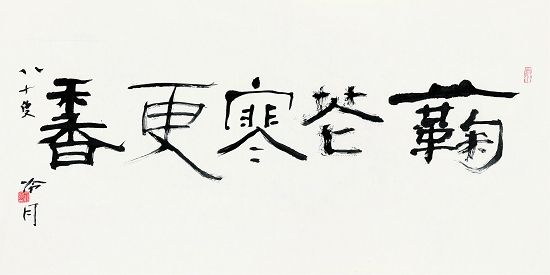 蘜花寒更香
八十叟
冷月